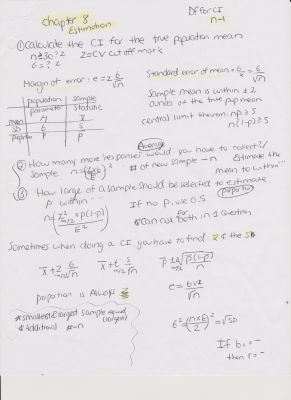 chapter 8
Estimation
DF for CI
n-1
① Calculate the CI for the true population mean
n≥30? z
σ=? z
Z=CV cutoff mark
Margin of error: e = z σ/√n
Standard error of mean = σ/√n
population sample
parameter statistic
mean μ x̄
SD σ s
proportion p p̄
Sample mean is within ±2
of the true pop mean
central limit theorem: np≥5
n(1-p)≥5
Average
② How many more responses would you have to collect/
Sample n=(zxσ/E)² # of new sample - n
Estimate the
mean to within"
③ How large of a sample should be selected to estimate
p within "
proportion
n=(z²α/2 × p(1-p)/E²)
If no p, use 0.5
*Can ask for both in 1 Question
Sometimes when doing a CI, you have to find x̄ & the SD
x̄±z σ/√n
x̄±t s/√n
p̄±z √p̄(1-p̄)/√n
proportion is Always z
e = σxz/√n
*smallest & largest sample equal (largest)
*Additional # - n
σ²=(nxE/2)²=√SD
If b₁ = -
then r = -